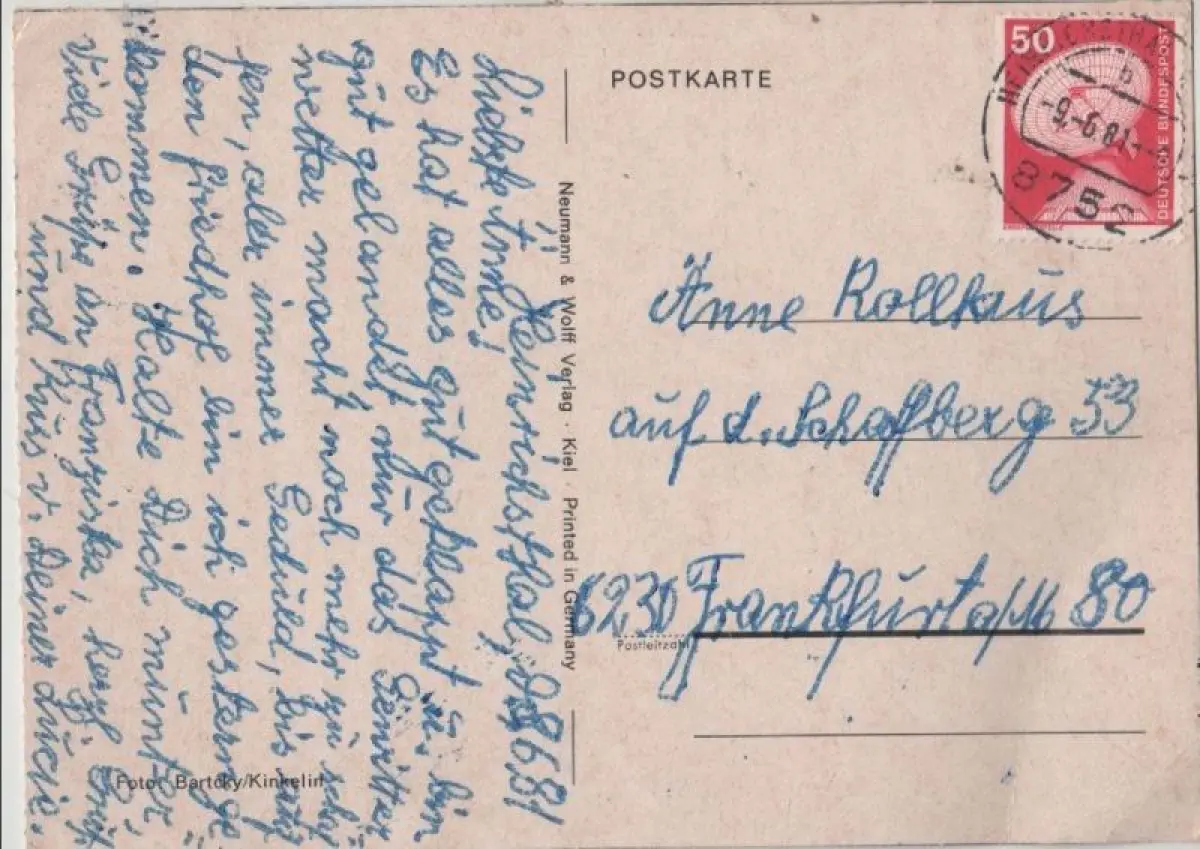 POSTKARTE
50
DEUTSCHE BUNDESPOST
b
-9.-6.81
8752
Änne Rollhaus
auf d. Schafberg 53
6230 Frankfurt a/M 80
Postleitzahl
Neumann & Wolff Verlag · Kiel · Printed in Germany
Heinrichsthal, d. 8.6.81
Liebste Änne!
Es hat alles gut geklappt u. bin
gut gelandet nur das Gewitter
wetter macht noch mehr zu schaf
fen, aber immer Geduld, bis auf
den Friedhof bin ich gestern ge
kommen. Halte Dich munter,
Viele Grüße an Franziska, herzl. Gruß
und Kuss v. Deiner Lucie.
Foto: Bartcky/Kinkelin